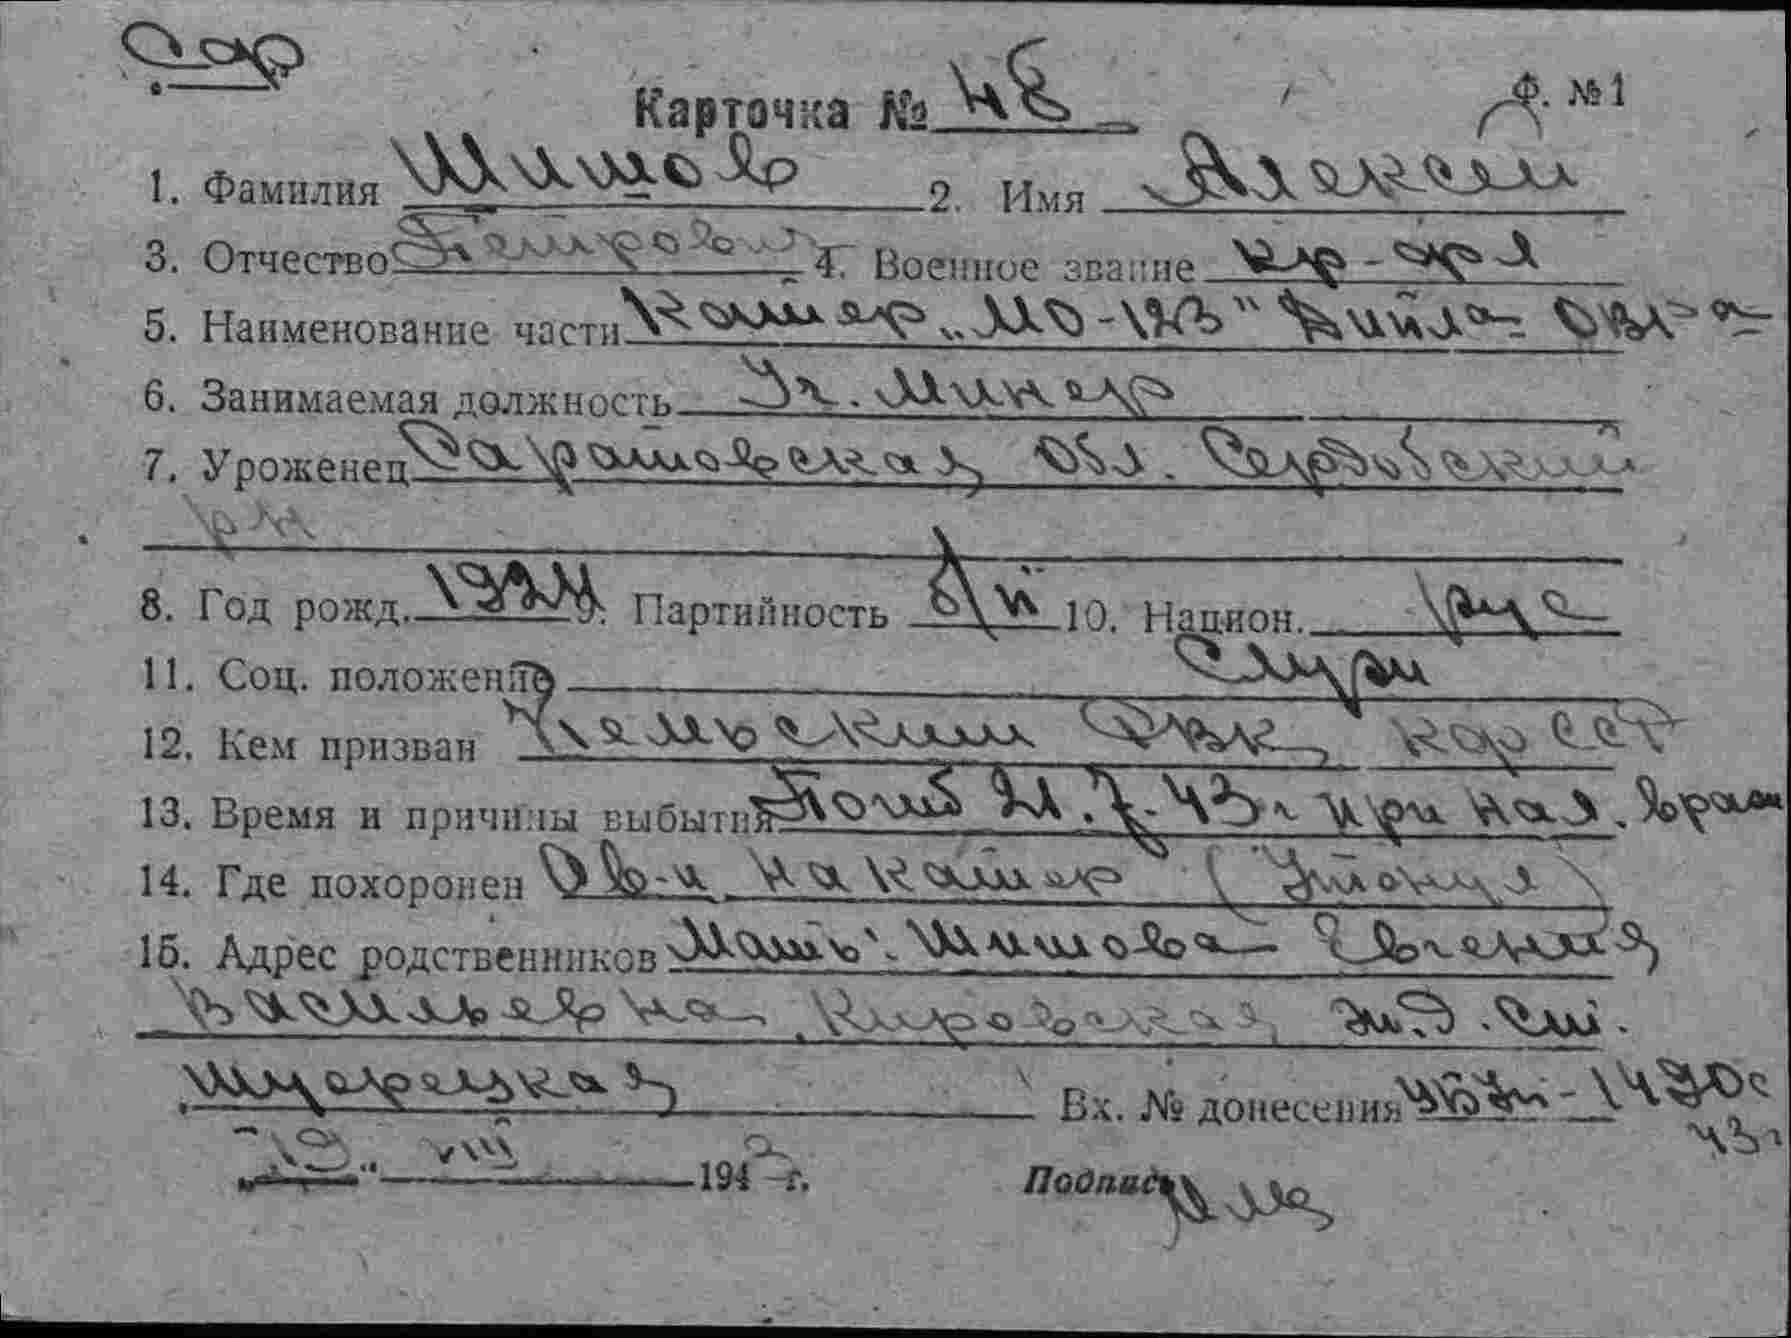 Сар
Карточка № 48 Ф. №1
1. Фамилия Шишов 2. Имя Алексей
3. Отчество Петрович 4. Военное звание кр-фл
5. Наименование части Катер „МО-123"
6. Занимаемая должность Уч. минер
7. Уроженец Саратовская Обл. Сердобский
рн
8. Год рожд. 1924 9. Партийность б/п 10. Национ. рус
11. Соц. положение
12. Кем призван Кемьский РВК, Кар ССР
13. Время и причины выбытия Погиб 21.7.43г при нал. враж
14. Где похоронен ав-и на катер (Утонул)
15. Адрес родственников Мать: Шишова Евгения
Васильевна, Кировская ж.д. ст.
Шуерецкая Вх. № донесения
43г
„19" VIII 1943 г. Подпись